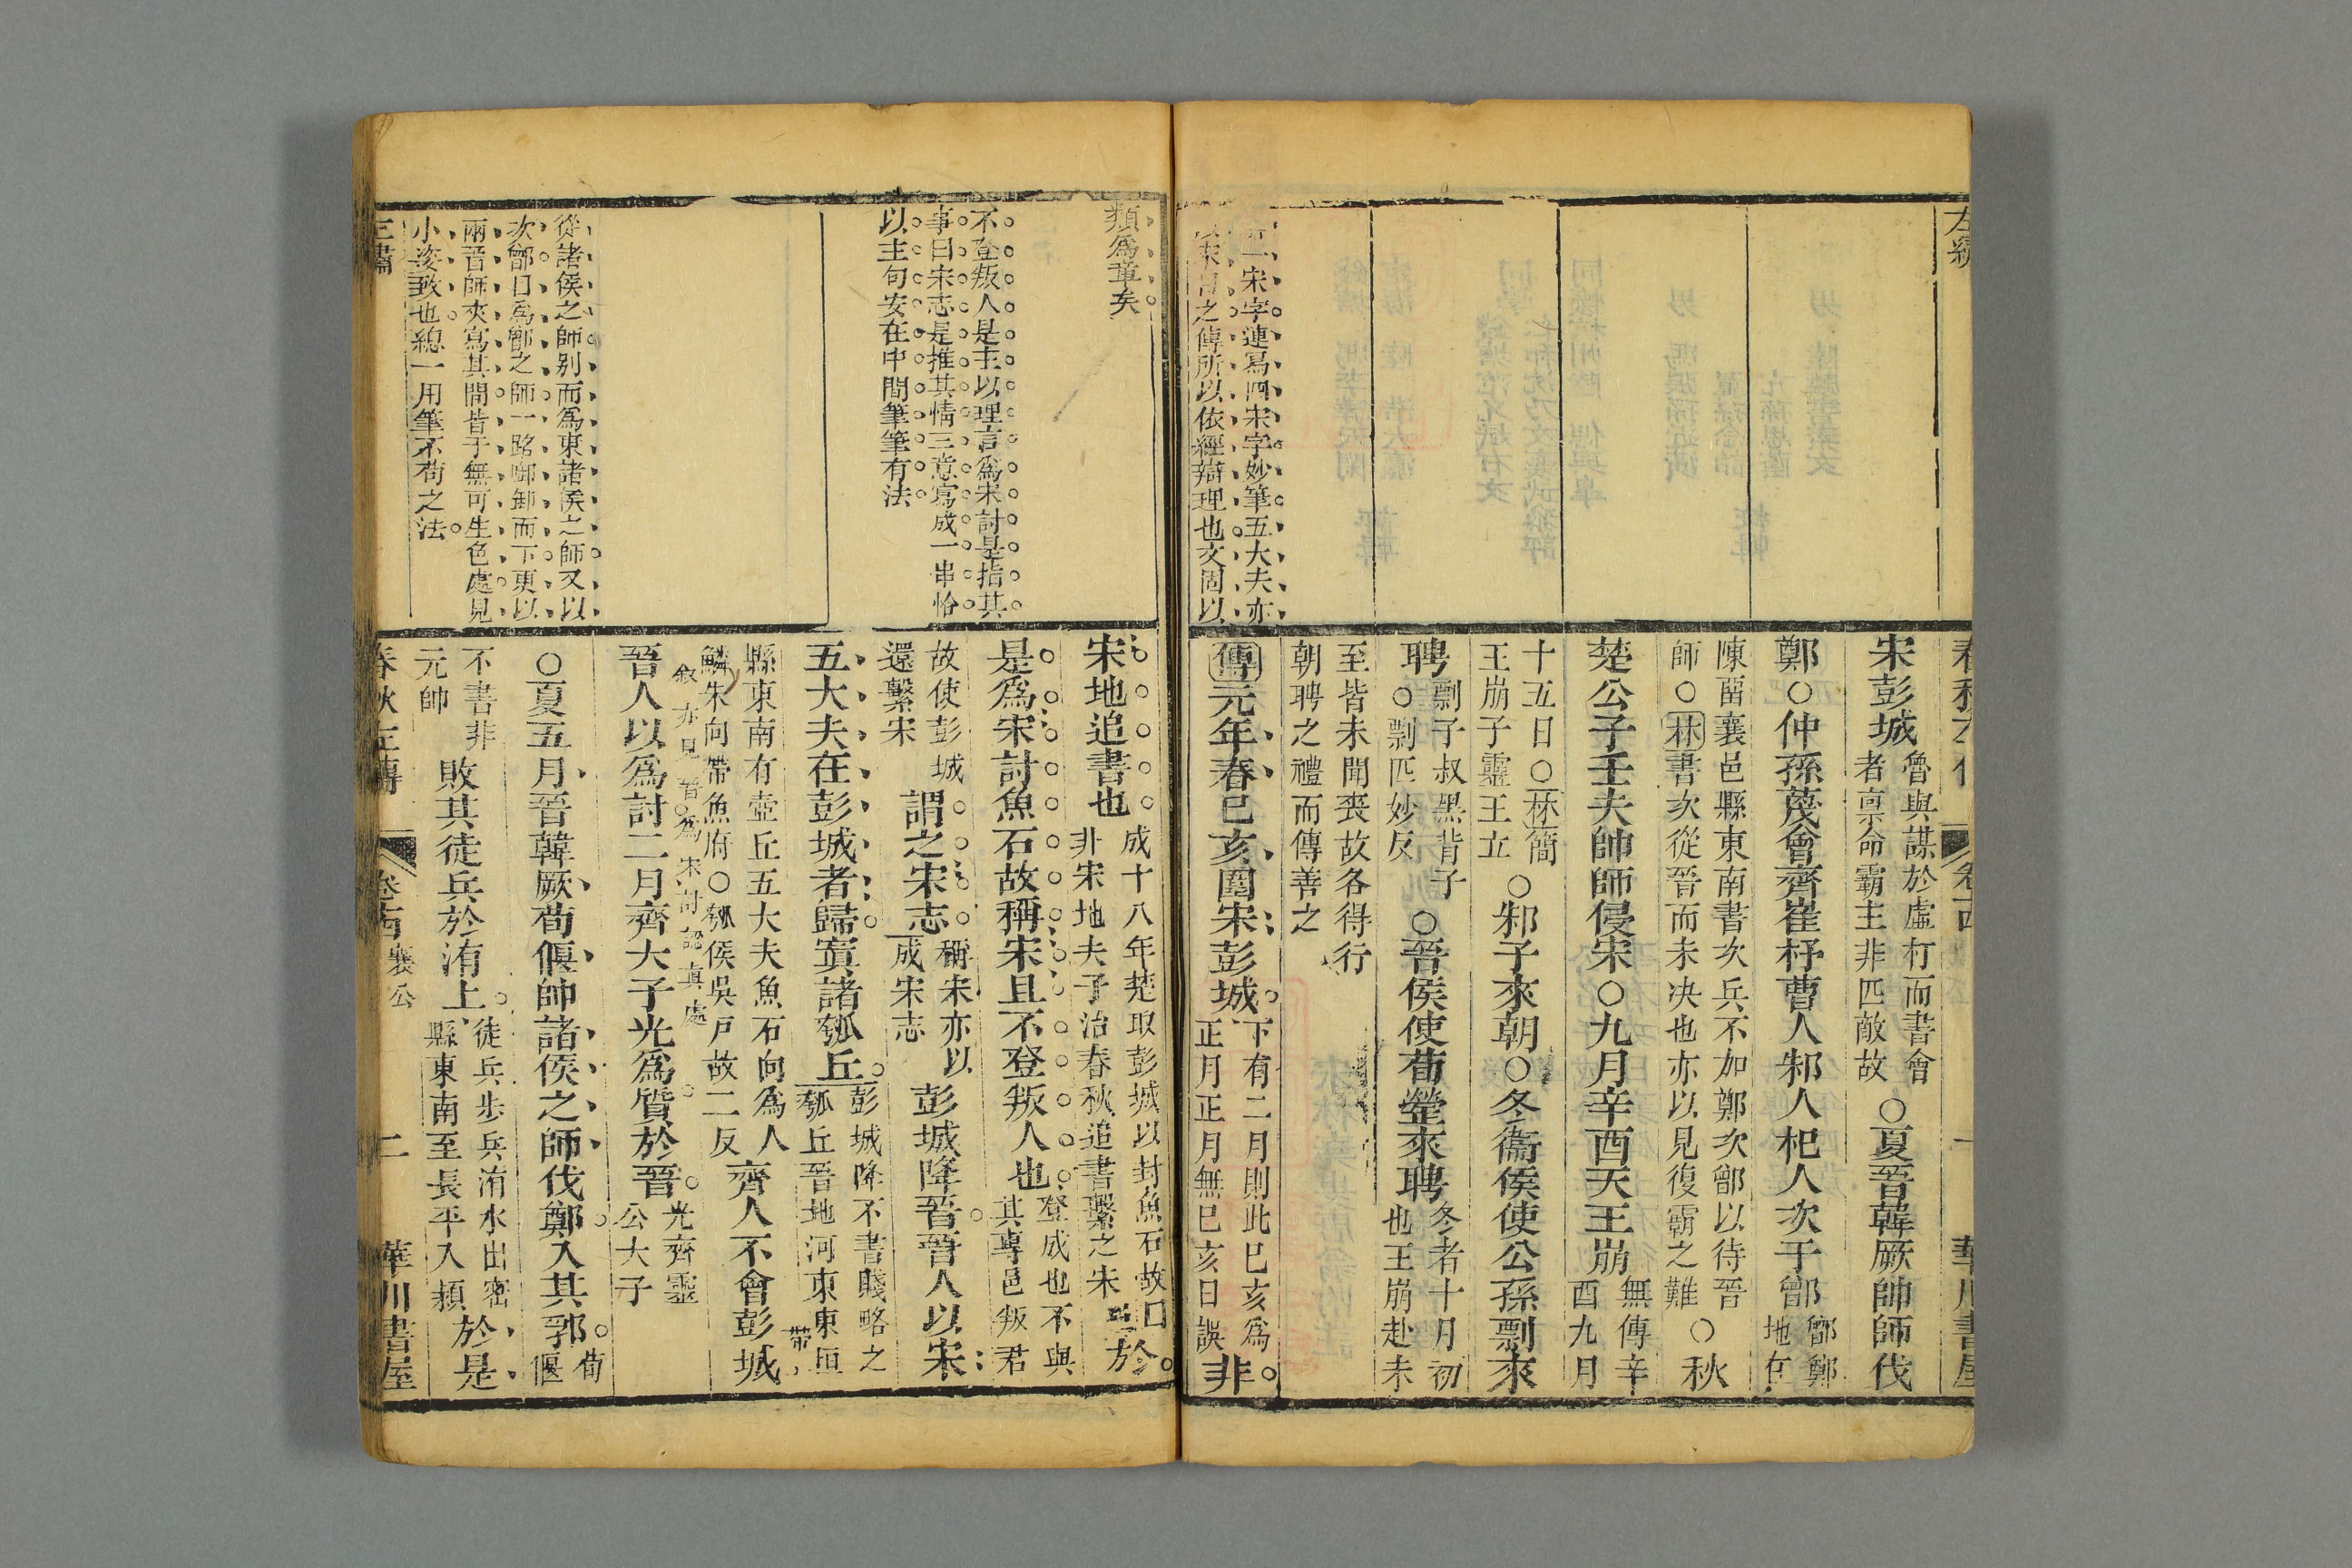 左繡
春秋左傳
卷十四
一
華川書屋
一宋字連寫兩宋字妙筆五大夫亦
以宋治之傳所以依經辯理也文固以
宋彭城魯與謀於虛朾而書會者禀命霸主非匹敵故○夏晉韓厥帥師伐
鄭○仲孫蔑會齊崔杼曹人邾人杞人次于鄫鄫鄭地在
陳畱襄邑縣東南書次兵不加鄭次鄫以待晉師○林書次從晉而未决也亦以見復霸之難○秋
楚公子壬夫帥師侵宋○九月辛酉天王崩無傳辛酉九月
十五日○林簡王崩子靈王立○邾子來朝○冬衞侯使公孫剽來
聘剽子叔黑背子○剽匹妙反○晉侯使荀罃來聘冬者十月初也王崩赴未
至皆未聞喪故各得行朝聘之禮而傳善之
傳元年春己亥圍宋彭城下有二月則此己亥爲正月正月無己亥日誤非
類爲章矣
不登叛人是主以理言爲宋討是指其
事曰宋志是推其情三意寫成一串恰
以主句安在中間筆筆有法
從諸侯之師别而爲東諸侯之師又以
次鄫日爲鄫之師一路啣卸而下更以
兩晉師夾寫其間皆于無可生色處見
小姿致也總一用筆不苟之法
宋地追書也成十八年楚取彭城以封魚石故曰非宋地夫子治春秋追書繫之宋於
是爲宋討魚石故稱宋且不登叛人也登成也不與其專邑叛君
故使彭城還繫宋謂之宋志稱宋亦以成宋志彭城降晉晉人以宋
五大夫在彭城者歸寘諸瓠丘彭城降不書賤略之瓠丘晉地河東東垣
縣東南有壺丘五大夫魚石向爲人鱗朱向帶魚府○瓠侯吳戸故二反齊人不會彭城
帶
敘亦見晉爲宋討認真處
晉人以爲討二月齊大子光爲質於晉光齊靈公大子
○夏五月晉韓厥荀偃帥諸侯之師伐鄭入其郛荀偃
不書非元帥敗其徒兵於洧上徒兵步兵洧水出密縣東南至長平入潁於是
春秋左傳
卷十四
襄公
二
華川書屋